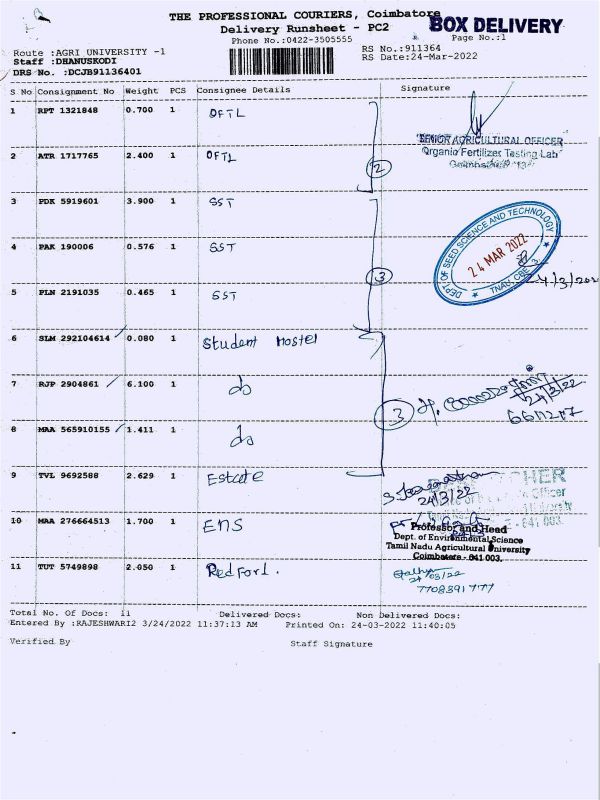 THE PROFESSIONAL COURIERS, Coimbatore
BOX DELIVERY
Delivery Runsheet - PC2
Page No.:1
Phone No.:0422-3505555
Route :AGRI UNIVERSITY -1
RS No.:911364
Staff :DHANUSKODI
RS Date:24-Mar-2022
DRS No. :DCJB91136401
S No Consignment No Weight PCS Consignee Details Signature
1 RPT 1321848 0.700 1 OFTL
SENIOR AGRICULTURAL OFFICER
Organic Fertilizer Testing Lab
2 ATR 1717765 2.400 1 OFTL
2
3 PDK 5919601 3.900 1 SST
DEPT OF SEED SCIENCE AND TECHNOLOGY
24 MAR 2022
TNAU, CBE. 3.
4 PAK 190006 0.576 1 SST
3
5 PLN 2191035 0.465 1 SST
6 SLM 292104614 0.080 1 Student Hostel
7 RJP 2904861 6.100 1 do
24/3/22
3
8 MAA 565910155 1.411 1 do
9 TVL 9692588 2.629 1 Estate
24/3/22
Officer
641 003.
10 MAA 276664513 1.700 1 ENS
Professor and Head
Dept. of Environmental Science
Tamil Nadu Agricultural University
Coimbatore - 641 003.
11 TUT 5749898 2.050 1 Redford.
24/03/22
Total No. Of Docs: 11 Delivered Docs: Non Delivered Docs:
Entered By :RAJESHWARI2 3/24/2022 11:37:13 AM Printed On: 24-03-2022 11:40:05
Verified By Staff Signature